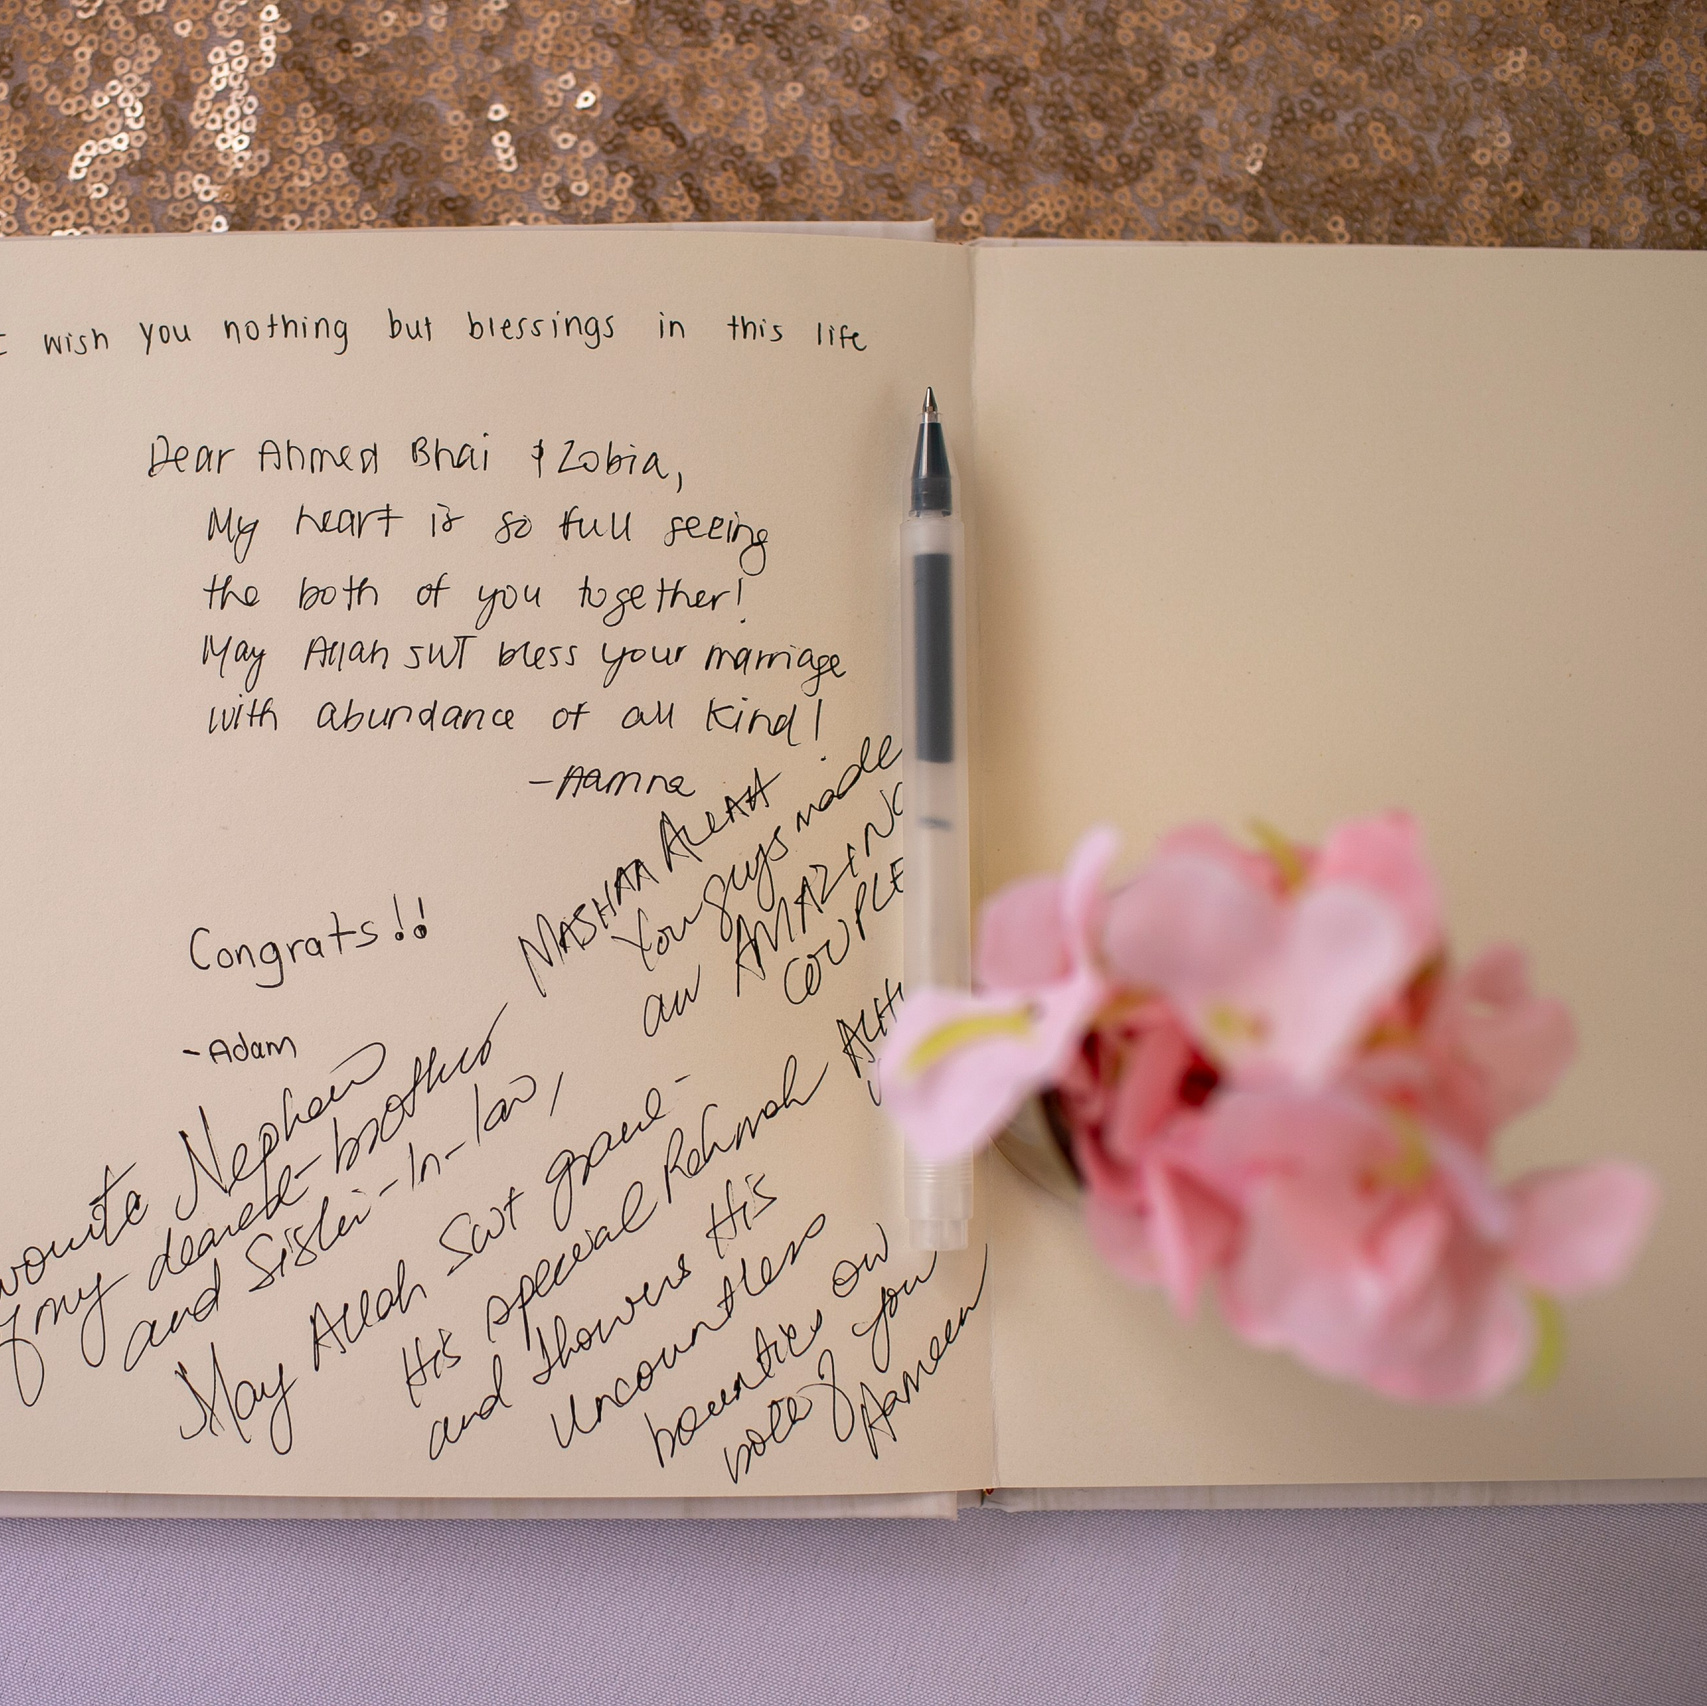 wish you nothing but blessings in this life
Dear Ahmed Bhai & Zobia,
My heart is so full seeing
the both of you together!
May Allah SWT bless your marriage
with abundance of all kind!
-Aamna
Congrats!!
-Adam
MASHAA ALLAH
You guys made
an AMAZING
COUPLE
Nephew
my dearest-brother
and Sister-In-law,
May Allah Swt
His special Rehmah
and showers His
uncountless
bounties on
both of you
Aameen